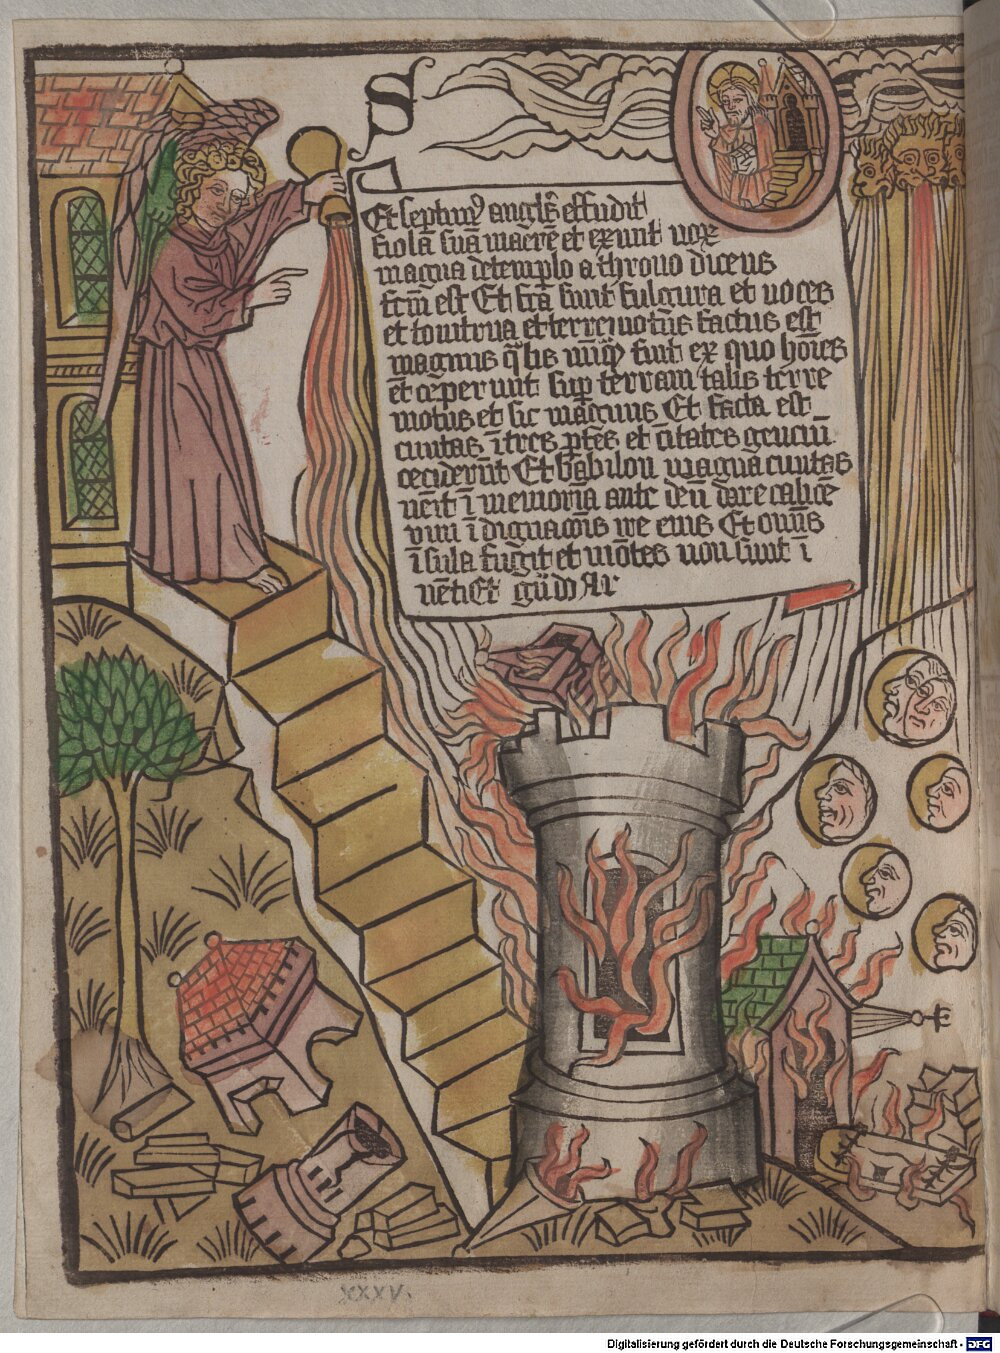 S
Et septim⁹ angl̄s effudit
fiolā suā in aerē et exiuit vox
magna de templo a throno dicens
fcm̄ est Et fca sunt fulgura et voces
et tonitrua et terremotus factus est
magnus q̄lis nūq̄ fuit ex quo hoīes
ceperunt sup terram talis terre
motus et sic magnus Et facta est
ciuitas ī tres ptes et ciuitates genciū
ceciderūt Et babilon magna ciuitas
venit ī memoria ante deū dare calicē
vini īdignacōis ire eius Et omīs
īsula fugit et mōtes non sunt ī
vēti Et
XXXV.
Digitalisierung gefördert durch die Deutsche Forschungsgemeinschaft - DFG